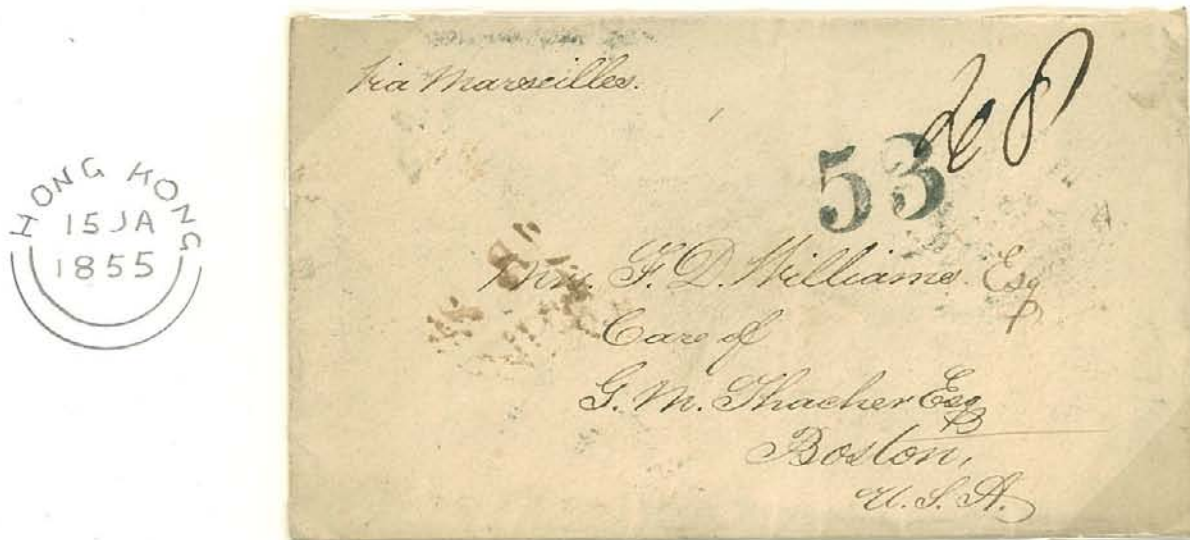 HONG KONG
15 JA
1855
Via Marseilles.
53
Wm. F. D. Williams Esq
Care of
G. M. Thacher Esq
Boston,
U. S. A.